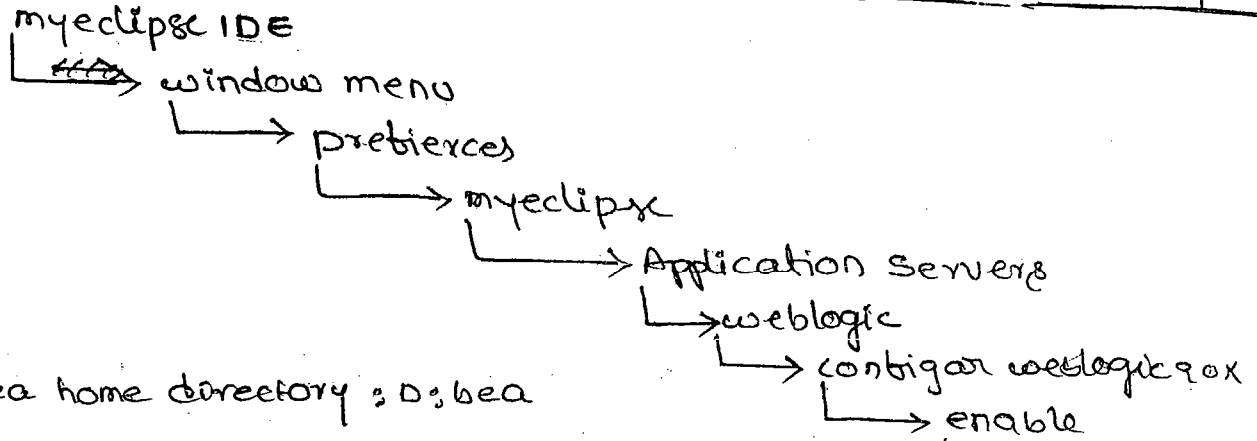 myeclipse IDE
window menu
prefierces
myeclipse
Application Servers
weblogic
configar weblogic 9.x
ea home dorectory : D:bea
enable